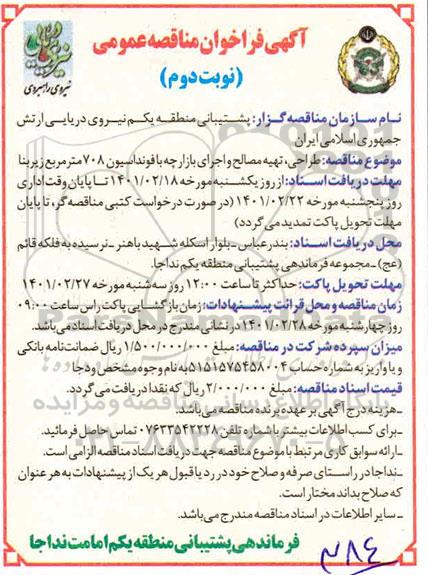 آگهی فراخوان مناقصه عمومی
(نوبت دوم)
نیروی راهبردی
نام سازمان مناقصه گزار: پشتیبانی منطقه یکم نیروی دریایی ارتش
جمهوری اسلامی ایران
موضوع مناقصه: طراحی، تهیه مصالح و اجرای بازارچه با فونداسیون ۷۰۸ مترمربع زیربنا
مهلت دریافت اسناد: از روز یکشنبه مورخه ۱۴۰۱/۰۲/۱۸ تا پایان وقت اداری
روز پنجشنبه مورخه ۱۴۰۱/۰۲/۲۲ (در صورت درخواست کتبی مناقصه گر، تا پایان
مهلت تحویل پاکت تمدید می گردد)
محل دریافت اسناد: بندرعباس ـ بلوار اسکله شهید باهنر ـ نرسیده به فلکه قائم
(عج) ـ مجموعه فرماندهی پشتیبانی منطقه یکم نداجا.
مهلت تحویل پاکت: حداکثر تا ساعت ۱۲:۰۰ روز سه شنبه مورخه ۱۴۰۱/۰۲/۲۷
زمان مناقصه و محل قرائت پیشنهادات: زمان بازگشایی پاکت راس ساعت ۰۹:۰۰
روز چهارشنبه مورخه ۱۴۰۱/۰۲/۲۸ در نشانی مندرج در محل دریافت اسناد می باشد.
میزان سپرده شرکت در مناقصه: مبلغ ۱/۵۰۰/۰۰۰/۰۰۰ ریال ضمانت نامه بانکی
و یا واریز به شماره حساب ۵۱۵۱۵۷۵۴۵۸۰۰۴ به نام وجوه مشخص ودجا
قیمت اسناد مناقصه: مبلغ ۲/۰۰۰/۰۰۰ ریال که نقدا دریافت می گردد.
ـ هزینه درج آگهی بر عهده برنده مناقصه می باشد.
ـ برای کسب اطلاعات بیشتر با شماره تلفن ۰۷۶۳۳۵۴۲۲۲۸ تماس حاصل فرمائید.
ـ ارائه سوابق کاری مرتبط با موضوع مناقصه جهت دریافت اسناد مناقصه الزامی است.
ـ نداجا در راستای صرفه و صلاح خود در رد یا قبول هر یک از پیشنهادات به هر عنوان
که صلاح بداند مختار است.
ـ سایر اطلاعات در اسناد مناقصه مندرج می باشد.
فرماندهی پشتیبانی منطقه یکم امامت نداجا
۳۸۴
پایگاه اطلاع رسانی مناقصه و مزایده
۰۲۱-۸۸۳۴۹۶۷۰-۵